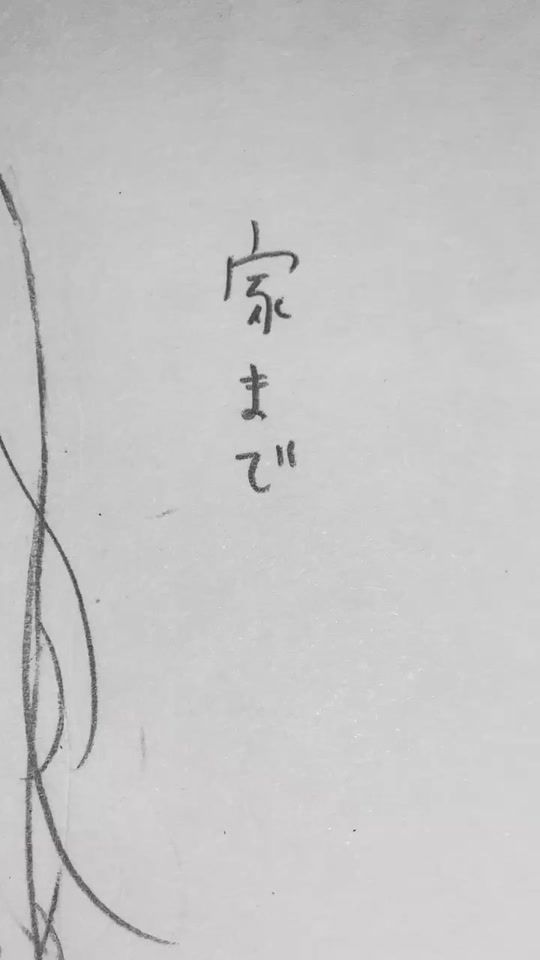 家まで